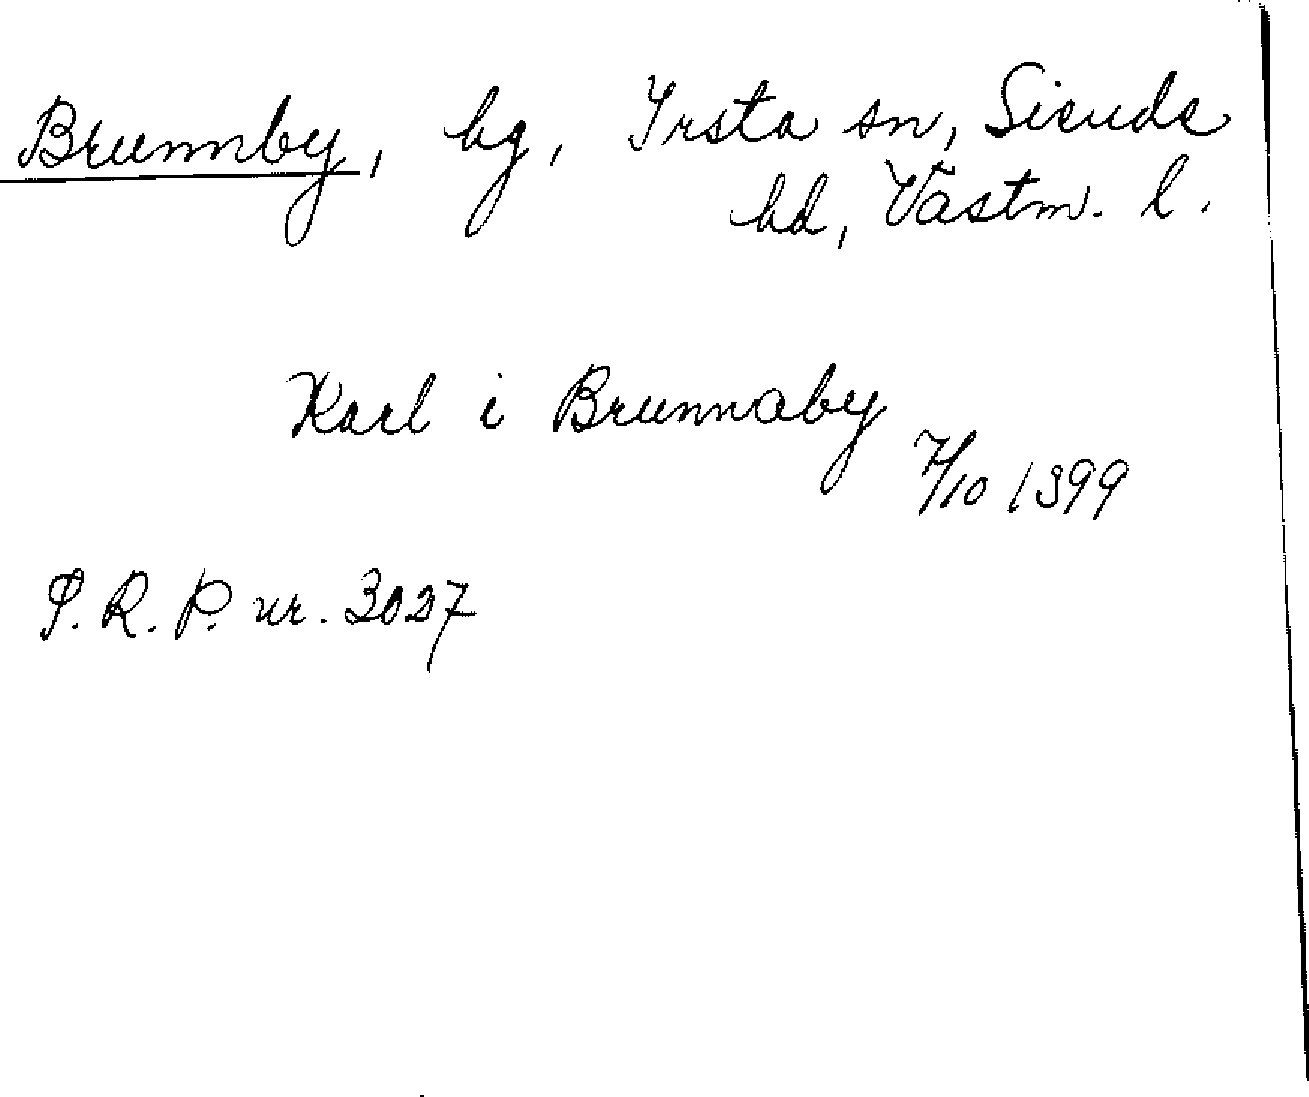 Brunnby, by, Irsta sn, Siende
hd, Västm. l.
Karl i Brunnaby
7/10 1399
S. R. P. nr. 3027